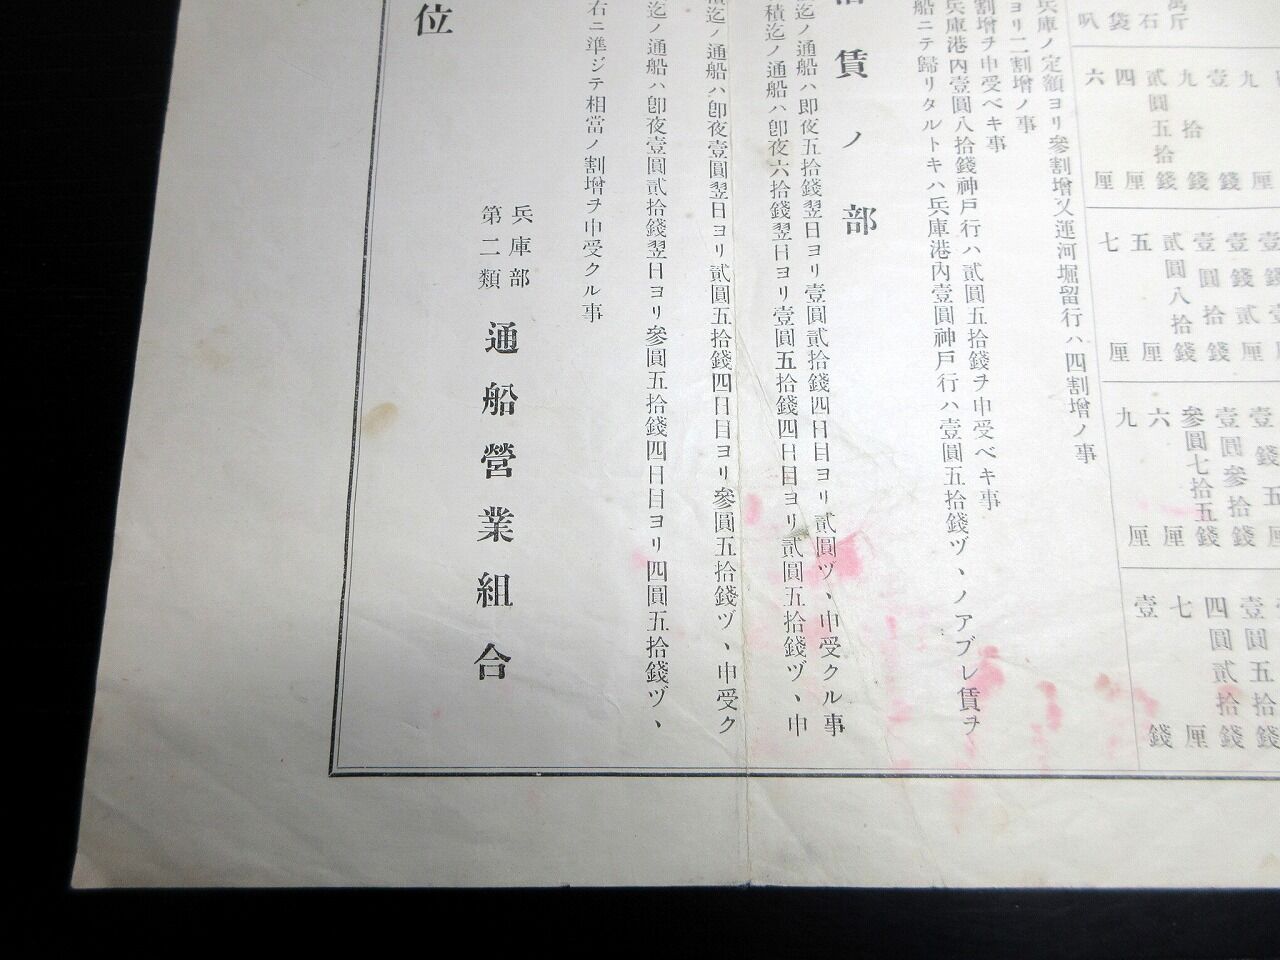 萬斤
石
袋
叺
九
壹
九拾錢
貳圓五拾錢
四厘
六厘
壹錢
壹錢貳厘
壹圓拾錢
貳圓八拾錢
五厘
七厘
壹錢五厘
壹圓參拾錢
參圓七拾五錢
六厘
九厘
壹圓五拾錢
四圓貳拾錢
七厘
壹錢
兵庫ノ定額ヨリ參割增又運河堀留行ハ四割增ノ事
ヨリ二割增ノ事
割增ヲ申受ベキ事
兵庫港內壹圓八拾錢神戶行ハ貳圓五拾錢ヲ申受ベキ事
船ニテ歸リタルトキハ兵庫港內壹圓神戶行ハ壹圓五拾錢ヅヽノアブレ賃ヲ
賃ノ部
迄ノ通船ハ卽夜五拾錢翌日ヨリ壹圓貳拾錢四日目ヨリ貳圓ヅヽ申受クル事
積迄ノ通船ハ卽夜六拾錢翌日ヨリ壹圓五拾錢四日目ヨリ貳圓五拾錢ヅヽ申
積迄ノ通船ハ卽夜壹圓翌日ヨリ貳圓五拾錢四日目ヨリ參圓五拾錢ヅヽ申受ク
迄ノ通船ハ卽夜壹圓貳拾錢翌日ヨリ參圓五拾錢四日目ヨリ四圓五拾錢ヅヽ
右ニ準ジテ相當ノ割增ヲ申受クル事
兵庫部
第二類
通船營業組合
位